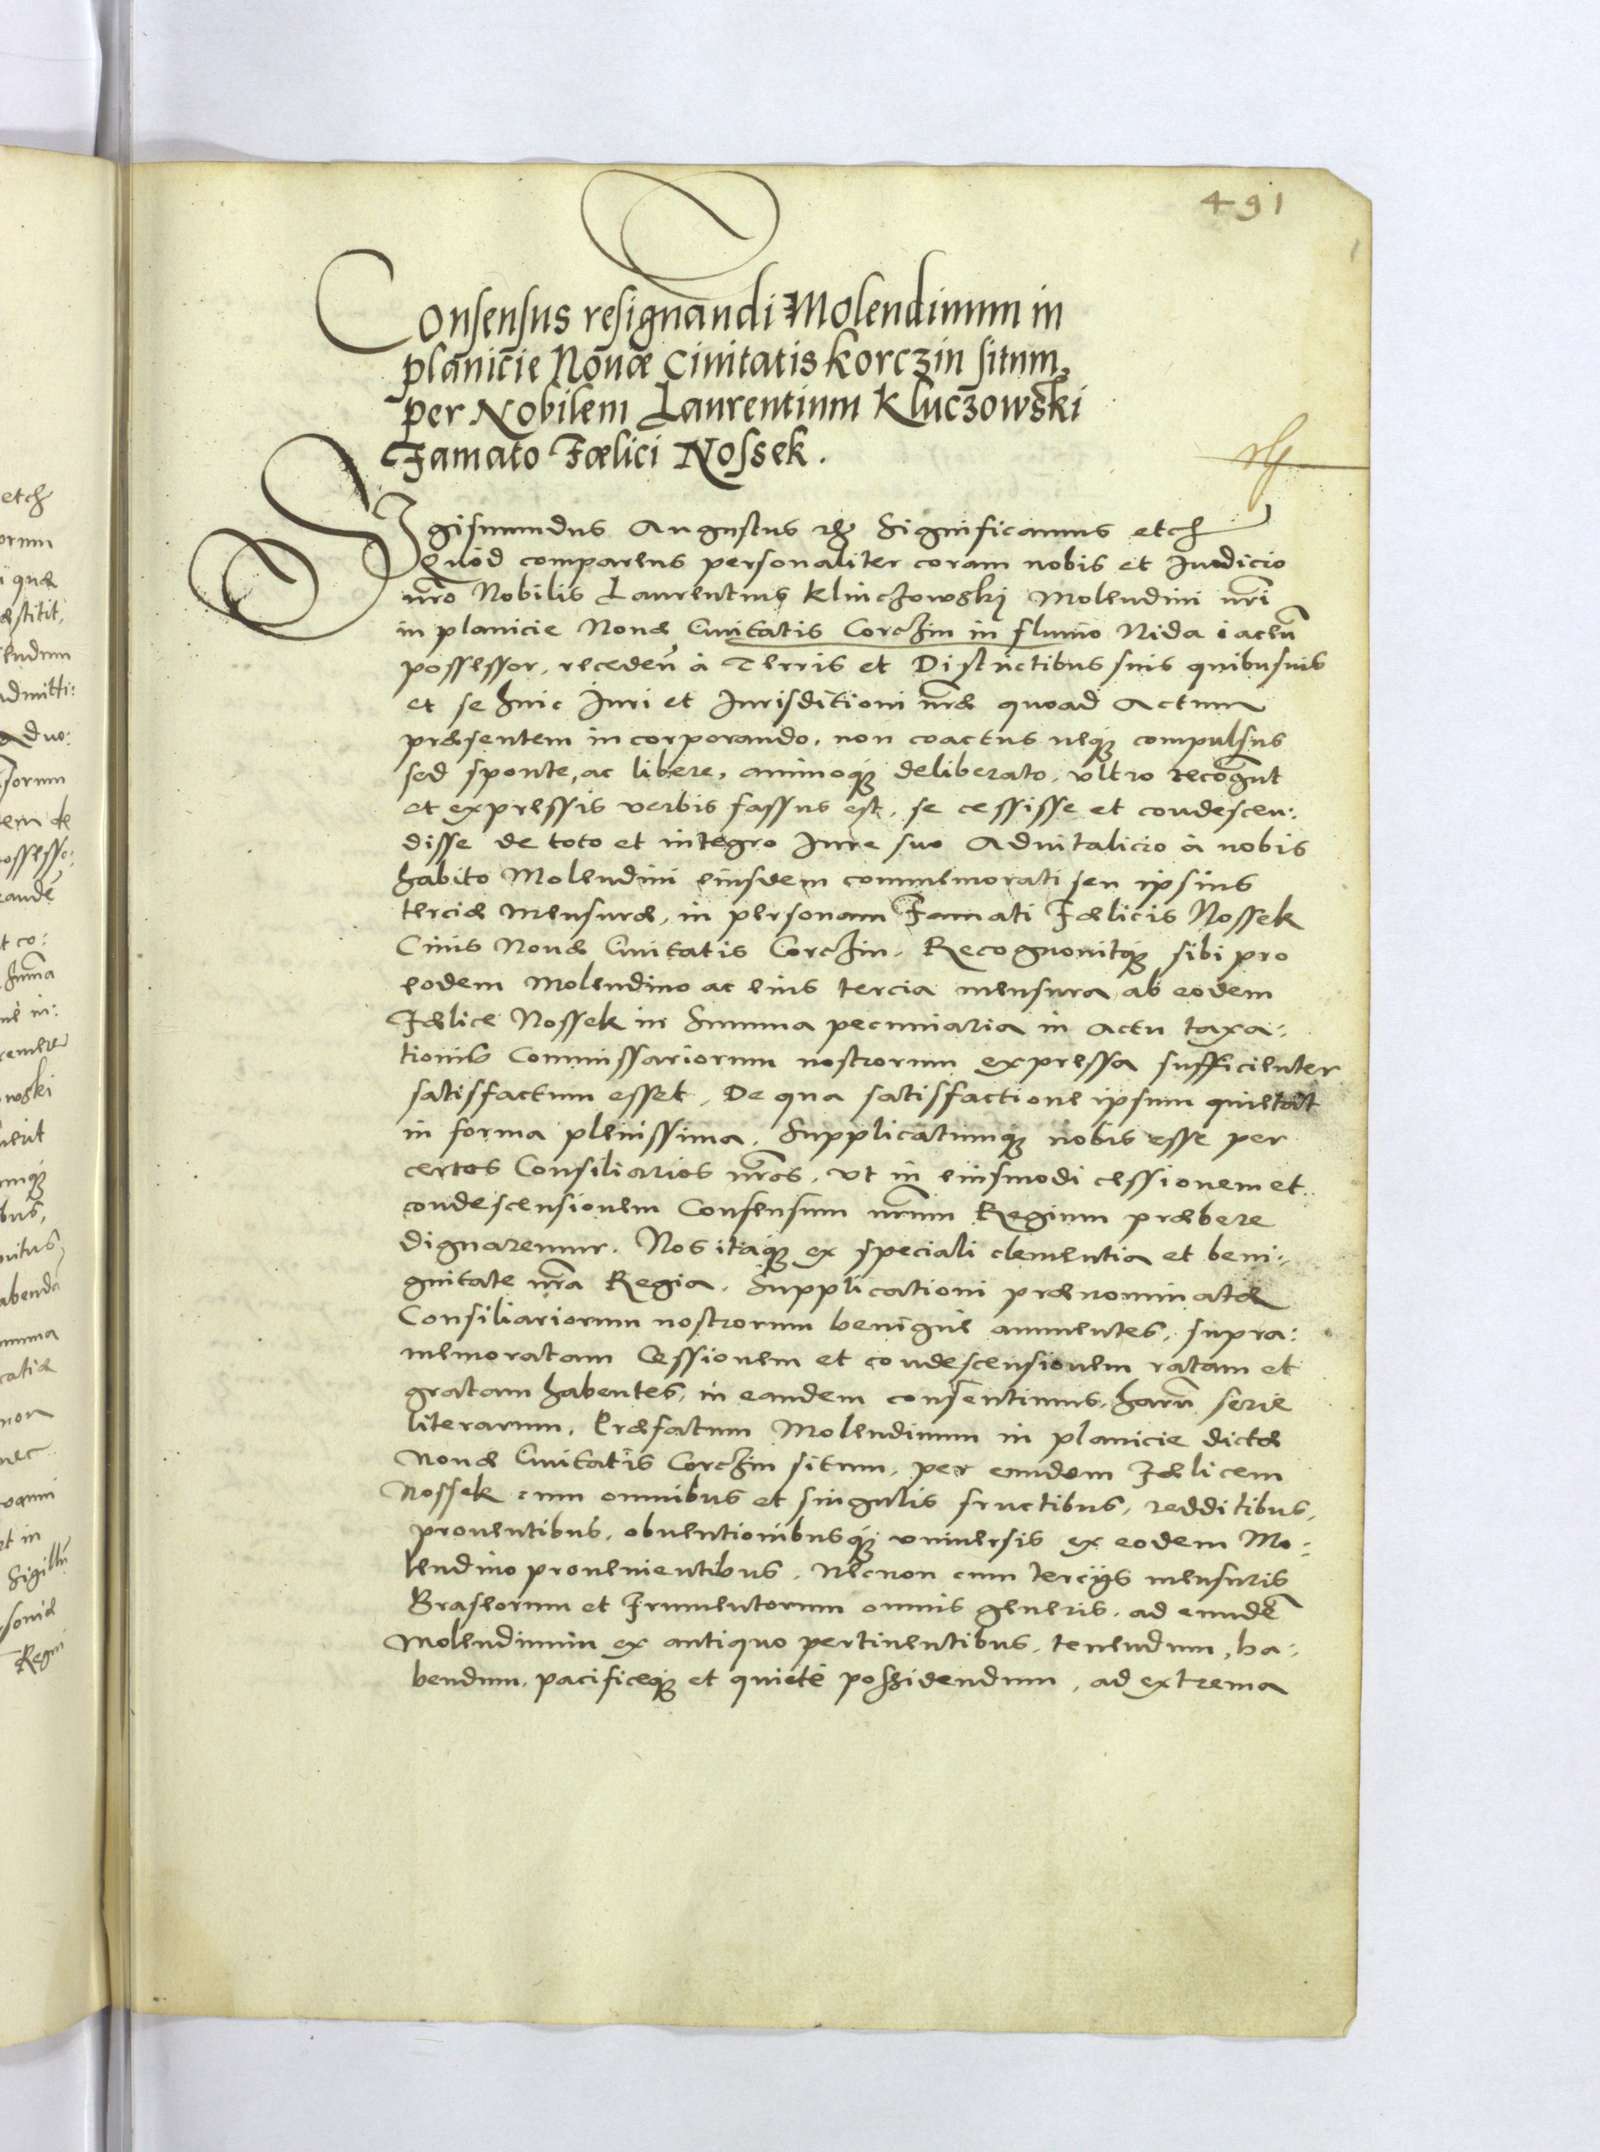 491
Consensus resignandi Molendinum in
planicie Nouæ Ciuitatis Korczin situm,
per Nobilem Laurentium Kluczowski
Famato Fœlici Nossek.
Sigismundus Augustus etc Significamus etc
Quod comparens personaliter coram nobis et Iudicio
nr̃o Nobilis Laurentius Kliuczowskj Molendini nr̃i
in planicie Nouæ Ciuitatis Corczin in fluuio Nida iaceñ
possessor, recedeñ à Terris et Districtibus suis quibusuis
et se huic Iuri et Iurisditioni nr̃æ quoad Actum
præsentem incorporando, non coactus neq₃ compulsus
sed sponte, ac libere, animoq₃ deliberato, vltro recogn̄t
et expressis verbis fassus est, se cessisse et condescen:
disse de toto et integro Iure suo Aduitalicio à nobis
habito Molendini eiusdem commemorati seu ipsius
terciæ Mensuræ, in personam Famati Fœlicis Nossek
Ciuis Nouæ Ciuitatis Corczin. Recognouitq₃ sibi pro
eodem Molendino ac eius tercia mensura ab eodem
Fœlice Nossek in Summa pecuniaria in Actu taxa:
tionis Commissariorum nostrorum expressa sufficienter
satisfactum esset, De qua satisfactione ipsum quietat
in forma plenissima. Supplicatumq₃ nobis esse per
certos Consiliarios nr̃os, vt in eiusmodi cessionem et
condescensionem Consensum nr̃um Regium præbere
dignaremur. Nos itaq₃ ex speciali clementia et beni:
gnitate nr̃a Regia, Supplicationi prænominatæ
Consiliariorum nostrorum benigne annuentes, supra:
memoratam Cessionem et condescensionem ratam et
gratam habentes, in eandem consentimus, harũ serie
literarum, Præfatum Molendinum in planicie dictæ
Nouæ Ciuitatis Corczin situm, per eundem Fœlicem
Nossek cum omnibus et singulis fructibus, redditibus,
prouentibus, obuentionibusq₃ vniuersis ex eodem Mo:
lendino prouenientibus, Necnon cum tercijs mensuris
Braseorum et Frumentorum omnis generis, ad eundẽ
Molendinum ex antiquo pertinentibus, tenendum, ha:
bendum, pacificeq₃ et quietè possidendum, ad extrema